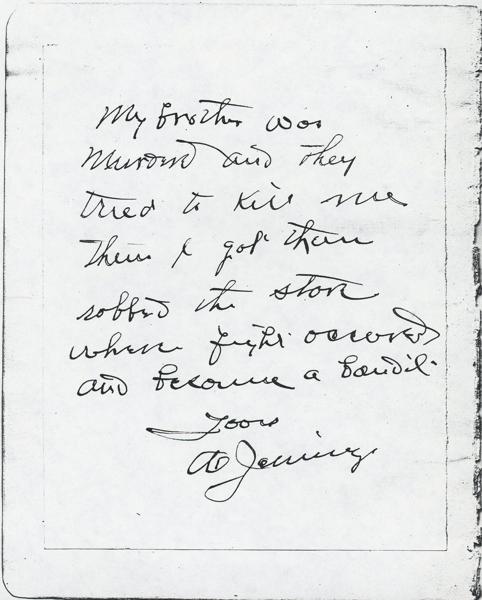 My brother was
Murderd and they
tried to kill me
Then I got them
robbed the store
where fight occured
and became a bandit
Yours
Al Jennings